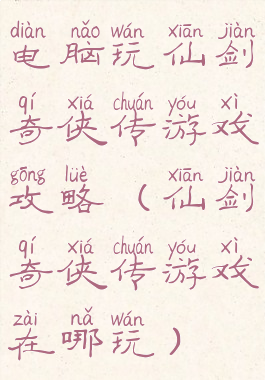 diàn nǎo wán xiān jiàn
电脑玩仙剑
qí xiá chuán yóu xì
奇侠传游戏
gōng lüè xiān jiàn
攻略（仙剑
qí xiá chuán yóu xì
奇侠传游戏
zài nǎ wán
在哪玩）